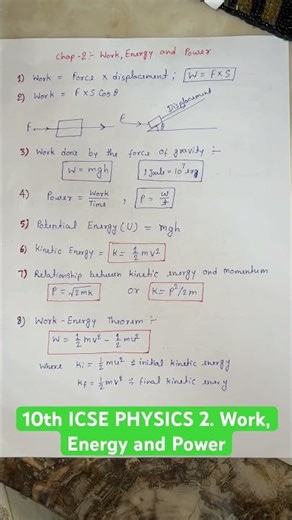 Chap-2:- Work, Energy and Power
1) Work = Force × displacement ; W = F×S
2) Work = F×S Cosθ
F
F
Displacement
θ
3) Work done by the force of gravity :-
W = mgh , 1 Joule = 10⁷ erg
4) Power = Work/Time , P = W/t
5) Potential Energy (U) = mgh
6) Kinetic Energy = K = 1/2 mv²
7) Relationship between kinetic energy and momentum
P = √2mk or K = P²/2m
8) Work-Energy Theorem :-
W = 1/2 mv² - 1/2 mu²
where Ki = 1/2 mu² = initial kinetic energy
Kf = 1/2 mv² = final kinetic energy
10th ICSE PHYSICS 2. Work,
Energy and Power